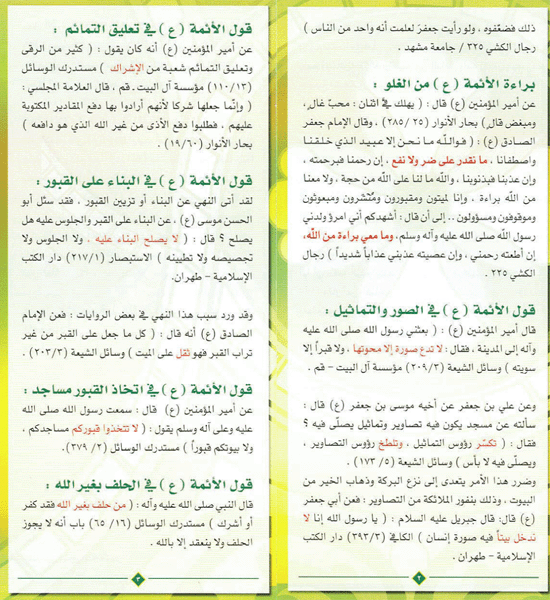 ذلك فضعّفوه ، ولو رأيت جعفرَ لعلمت أنه واحد من الناس )
رجال الكشي ٣٢٥ / جامعة مشهد .
براءة الأئمة ( ع ) من الغلو :
عن أمير المؤمنين (ع) قال : ( يهلك في اثنان : محبّ غالٍ،
ومبغض قالٍ) بحار الأنوار (٢٥ /٢٨٥) ، وقال الإمام جعفر
الصادق (ع) : ( فـوالـلـه مـا نـحـن إلا عـبـيـد الـذي خـلـقـنـا
واصطفانا ، ما نقدر على ضر ولا نفع ، إن رحمنا فبرحمته ،
وإن عذبنا فبذنوبنا ، والله ما لنا على الله من حجة ، ولا معنا
من الله براءة ، وإنا لميتون ومقبورون ومُنْشرون ومبعوثون
وموقوفون ومسؤولون .. إلى أن قال : أشهدكم أني امرؤ ولدني
رسول الله صلى الله عليه وآله وسلم، وما معي براءة من الله،
إن أطعته رحمني ، وإن عصيته عذبني عذاباً شديداً ) رجال
الكشي ٢٢٥ .
قول الأئمة ( ع ) في الصور والتماثيل :
قال أمير المؤمنين (ع) : ( بعثني رسول الله صلى الله عليه
وآله إلى المدينة ، فقال : لا تدع صورة إلا محوتها ، ولا قبراً إلا
سويته ) وسائل الشيعة (٢٠٩/٣) مؤسسة آل البيت – قم .
وعن علي بن جعفر عن أخيه موسى بن جعفر (ع) قال :
سألته عن مسجد يكون فيه تصاوير وتماثيل يصلّى فيه ؟
فقال : ( تكسّر رؤوس التماثيل ، وتلطخ رؤوس التصاوير ،
ويصلّى فيه لا بأس ) وسائل الشيعة (٥/ ١٧٣) .
وضرر هذا الأمر يتعدى إلى نزع البركة وذهاب الخير من
البيوت ، وذلك بنفور الملائكة من التصاوير : فعن أبي جعفر
(ع) قال: قال جبريل عليه السلام : ( يا رسول الله إنا لا
ندخل بيتاً فيه صورة إنسان ) الكافي (٣٩٣/٣) دار الكتب
الإسلامية – طهران.
٢
قول الأئمة ( ع ) في تعليق التمائم :
عن أمير المؤمنين (ع) أنه كان يقول : ( كثير من الرقى
وتعليق التمائم شعبة من الإشراك ) مستدرك الوسائل
(١١٠/١٣) مؤسسة آل البيت . قم ، قال العلامة المجلسي :
( وإنّما جعلها شركا لأنهم أرادوا بها دفع المقادير المكتوبة
عليهم ، فطلبوا دفع الأذى من غير الله الذي هو دافعه )
بحار الأنوار (١٩/٦٠) .
قول الأئمة ( ع ) في البناء على القبور :
لقد أتى النهي عن البناء أو تزيين القبور ، فقد سئل أبو
الحسن موسى (ع) ، عن البناء على القبر والجلوس عليه هل
يصلح ؟ قال : ( لا يصلح البناء عليه ، ولا الجلوس ولا
تجصيصه ولا تطيينه ) الاستبصار (٢١٧/١) دار الكتب
الإسلامية – طهران.
وقد ورد سبب هذا النهي في بعض الروايات : فعن الإمام
الصادق (ع) أنه قال : ( كل ما جعل على القبر من غير
تراب القبر فهو ثقل على الميت ) وسائل الشيعة (٢٠٣/٣) .
قول الأئمة ( ع ) في اتخاذ القبور مساجد :
عن أمير المؤمنين (ع) قال : سمعت رسول الله صلى الله
عليه وعلى آله وسلم يقول : ( لا تتخذوا قبوركم مساجدكم ،
ولا بيوتكم قبوراً ) مستدرك الوسائل (٢/ ٣٧٩).
قول الأئمة ( ع ) في الحلف بغير الله :
قال النبي صلى الله عليه وآله : ( من حلف بغير الله فقد كفر
أو أشرك ) مستدرك الوسائل (١٦/ ٦٥) باب أنه لا يجوز
الحلف ولا ينعقد إلا بالله .
٣